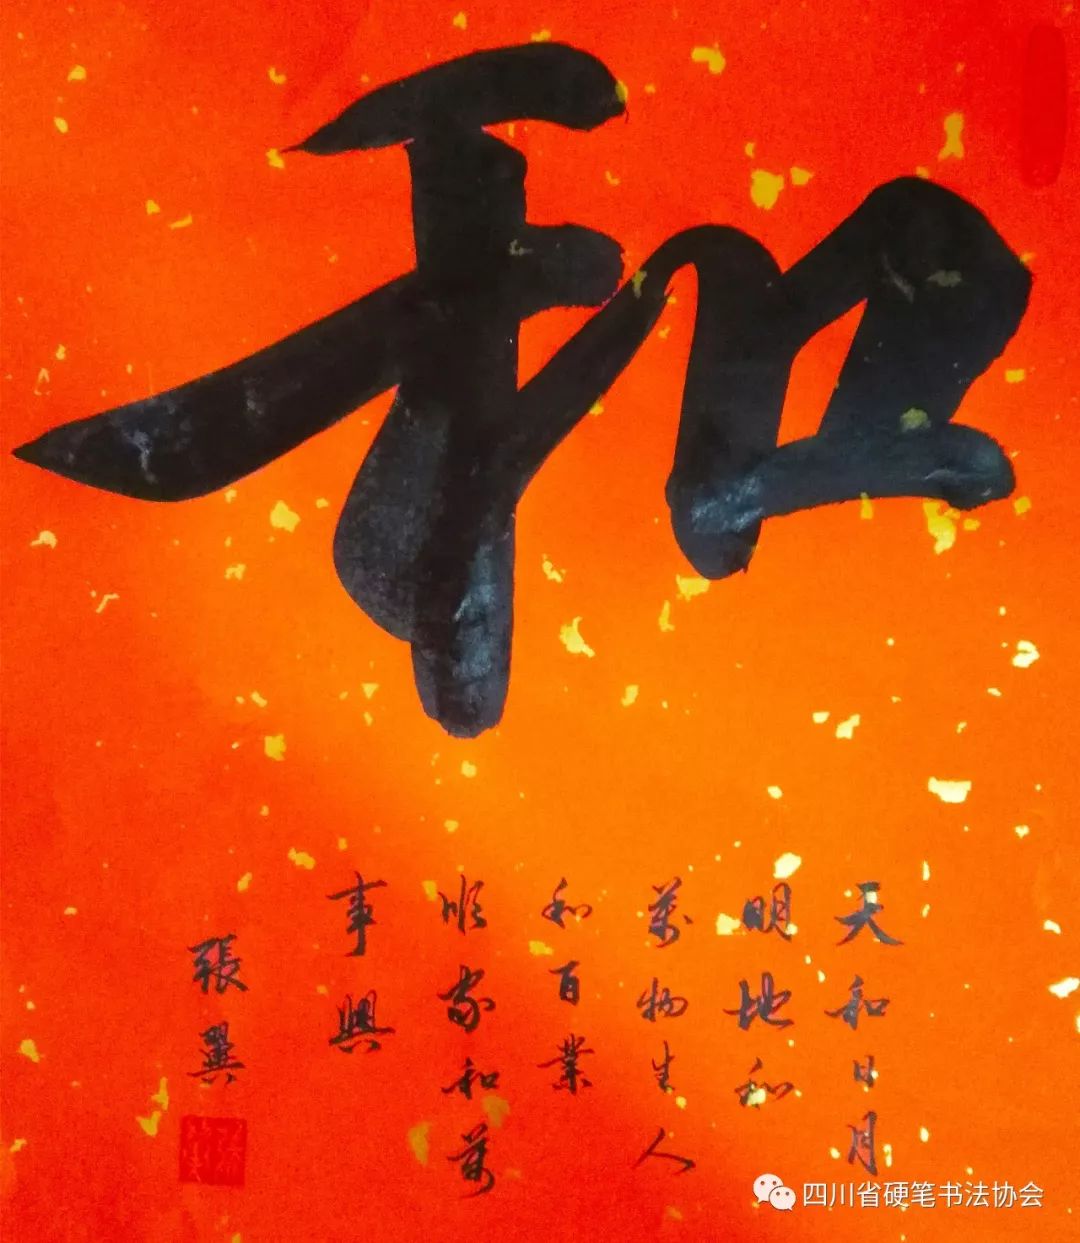 和
天和日月
明地和
萬物生人
和百業
顺家和萬
事興
張翼
四川省硬笔书法协会